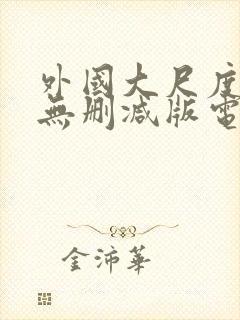 外國大尺度
無刪减版電
金沛華